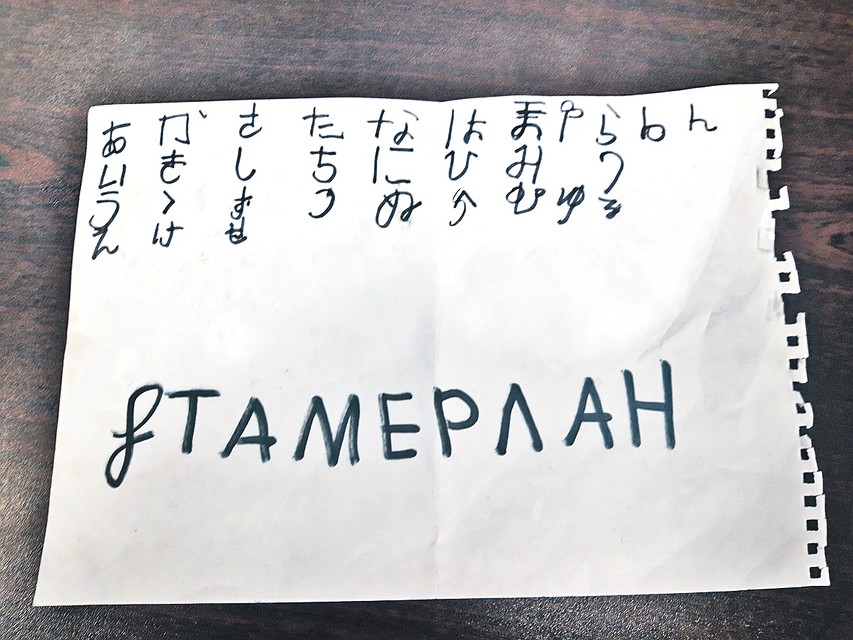 あいうえ
がきくけ
さしすせ
たちつ
なにぬ
はひふ
まみむ
やゆ
らりる
わ
ん
ТАМЕРЛАН